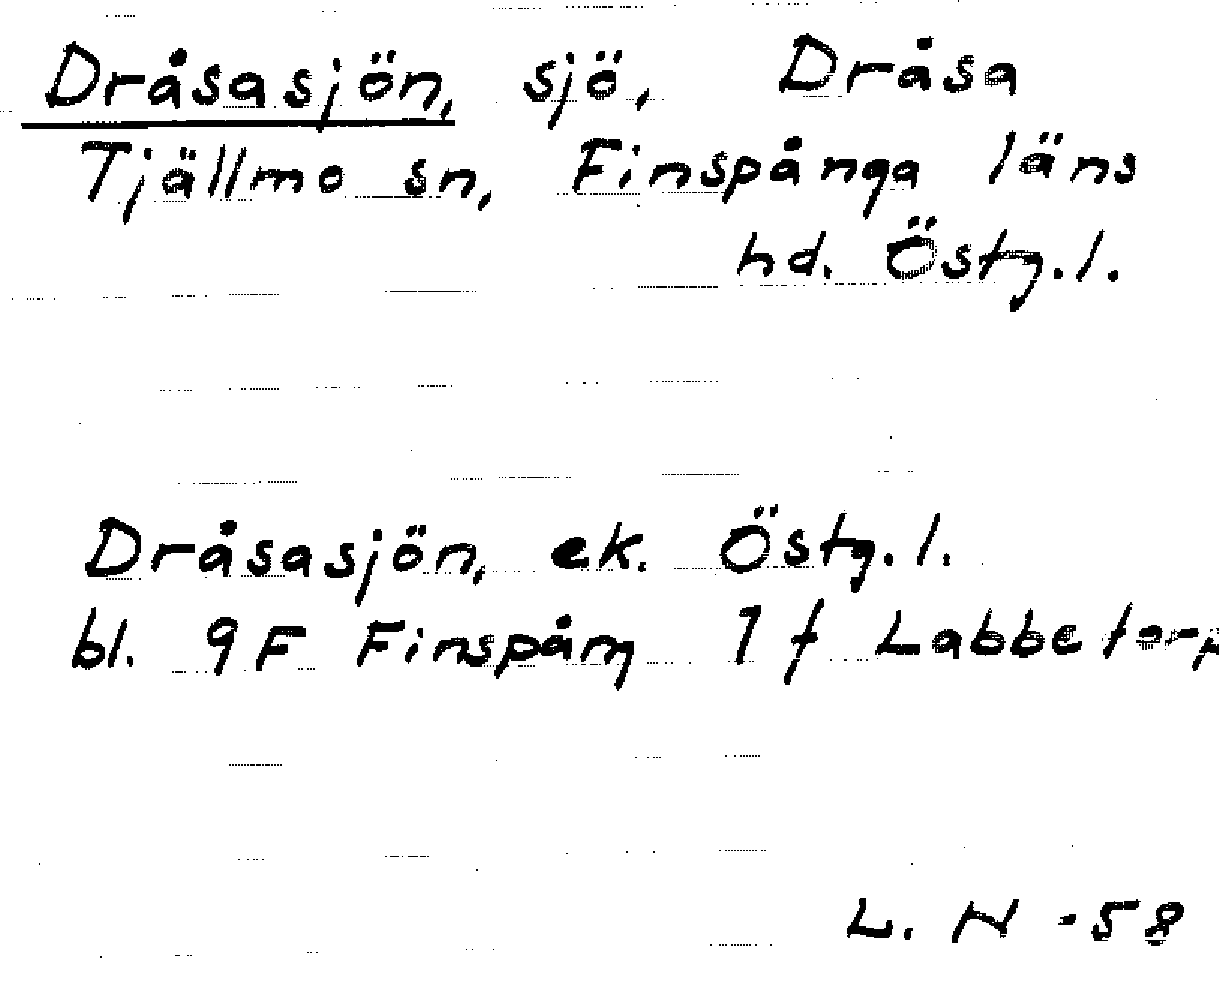 Dråsasjön, sjö, Dråsa
Tjällmo sn, Finspånga läns
hd. Östg.l.
Dråsasjön, ek. Östg.l.
bl. 9F Finspång 7f Labbetorp
L. N -58